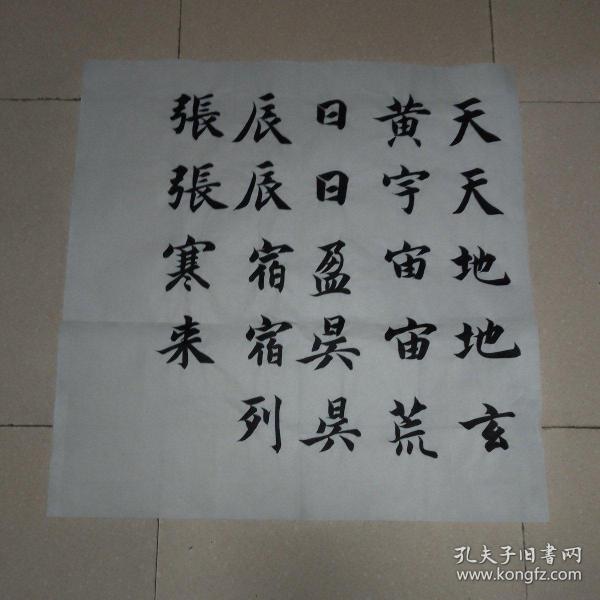 天天地地玄
黄宇宙宙荒
日日盈昃昃
辰辰宿宿列
張張寒来
孔夫子旧書网
www.kongfz.com